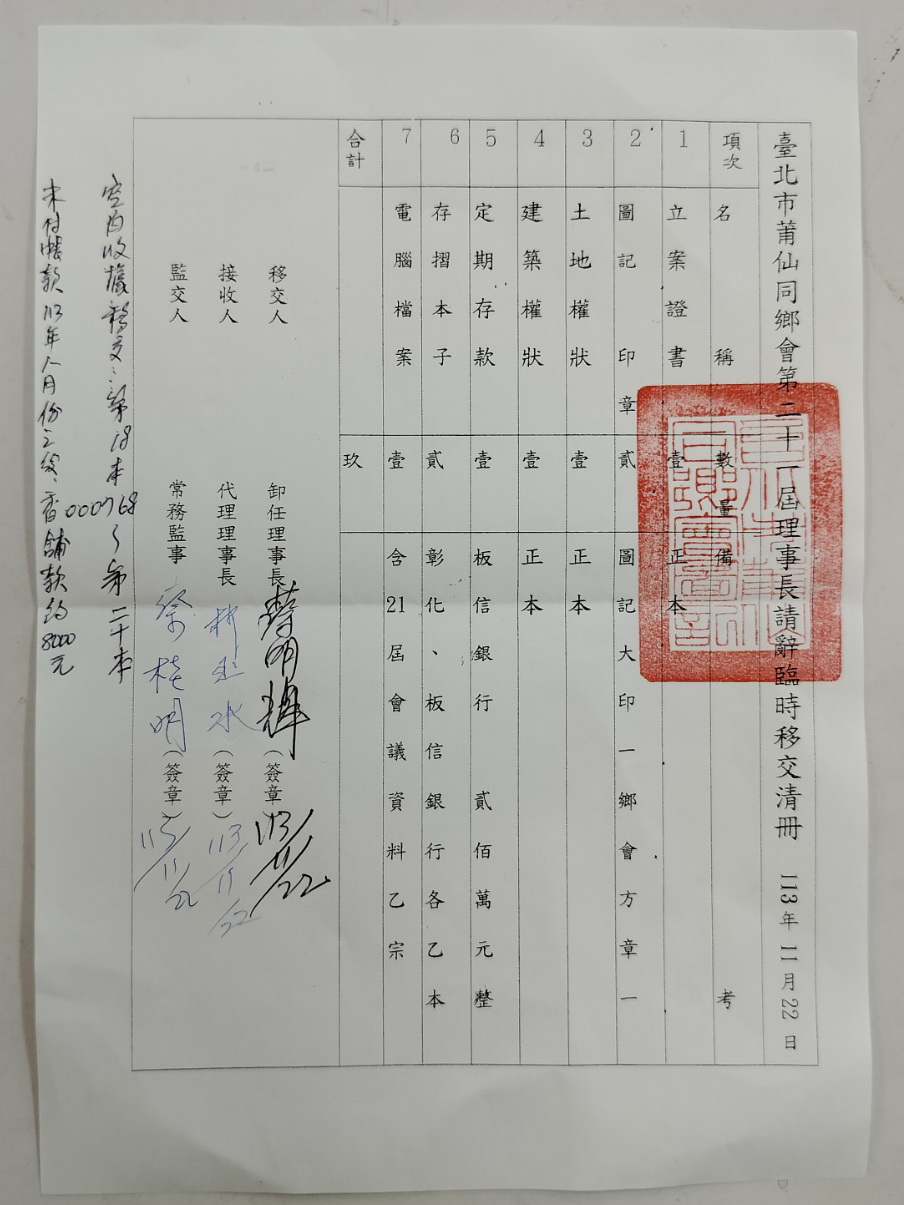 臺北市莆仙同鄉會第二十一屆理事長請辭臨時移交清冊 113年11月22日
項次 名稱 數量 備考
1 立案證書 壹 正本
2 圖記印章 貳 圖記大印一鄉會方章一
3 土地權狀 壹 正本
4 建築權狀 壹 正本
5 定期存款 壹 板信銀行 貳佰萬元整
6 存摺本子 貳 彰化、板信銀行各乙本
7 電腦檔案 壹 含21屆會議資料乙宗
合計 玖
移交人 卸任理事長 (簽章) 113/11/22
接收人 代理理事長 (簽章) 113/11/22
監交人 常務監事 (簽章) 113/11/22
空白收據移交:第18本000768~第二十本
未付帳款113年 月份 香舖款約8000元